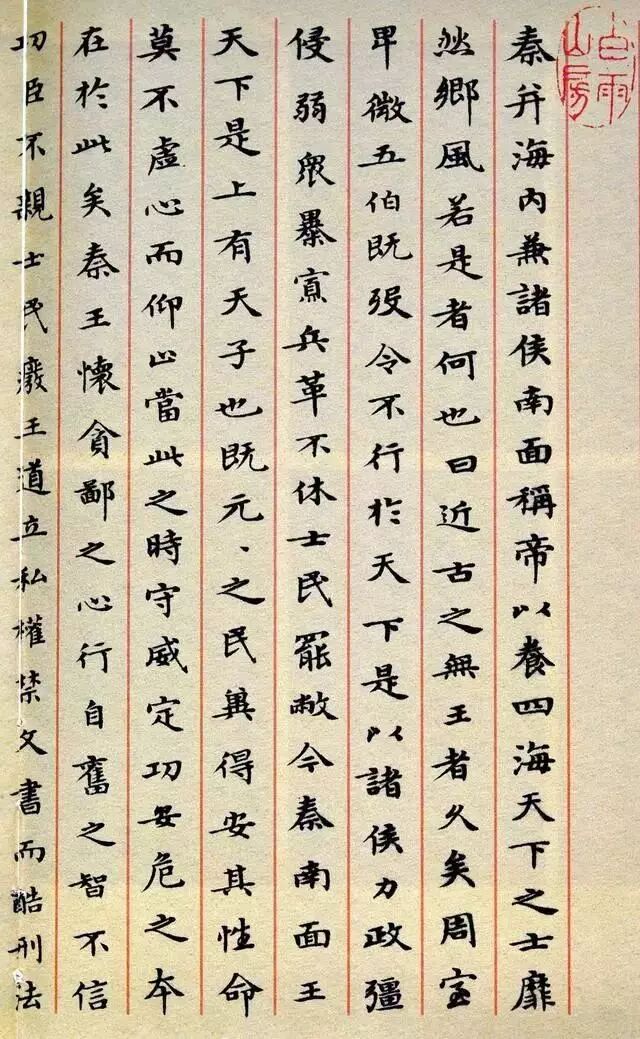 白雨山房
秦并海内兼諸侯南面稱帝以養四海天下之士靡
然鄉風若是者何也曰近古之無王者久矣周室
卑微五伯既歿令不行於天下是以諸侯力政彊
侵弱衆暴寡兵革不休士民罷敝今秦南面王
天下是上有天子也既元、之民冀得安其性命
莫不虛心而仰止當此之時守威定功安危之本
在於此矣秦王懷貪鄙之心行自奮之智不信
功臣不親士民廢王道立私權禁文書而酷刑法